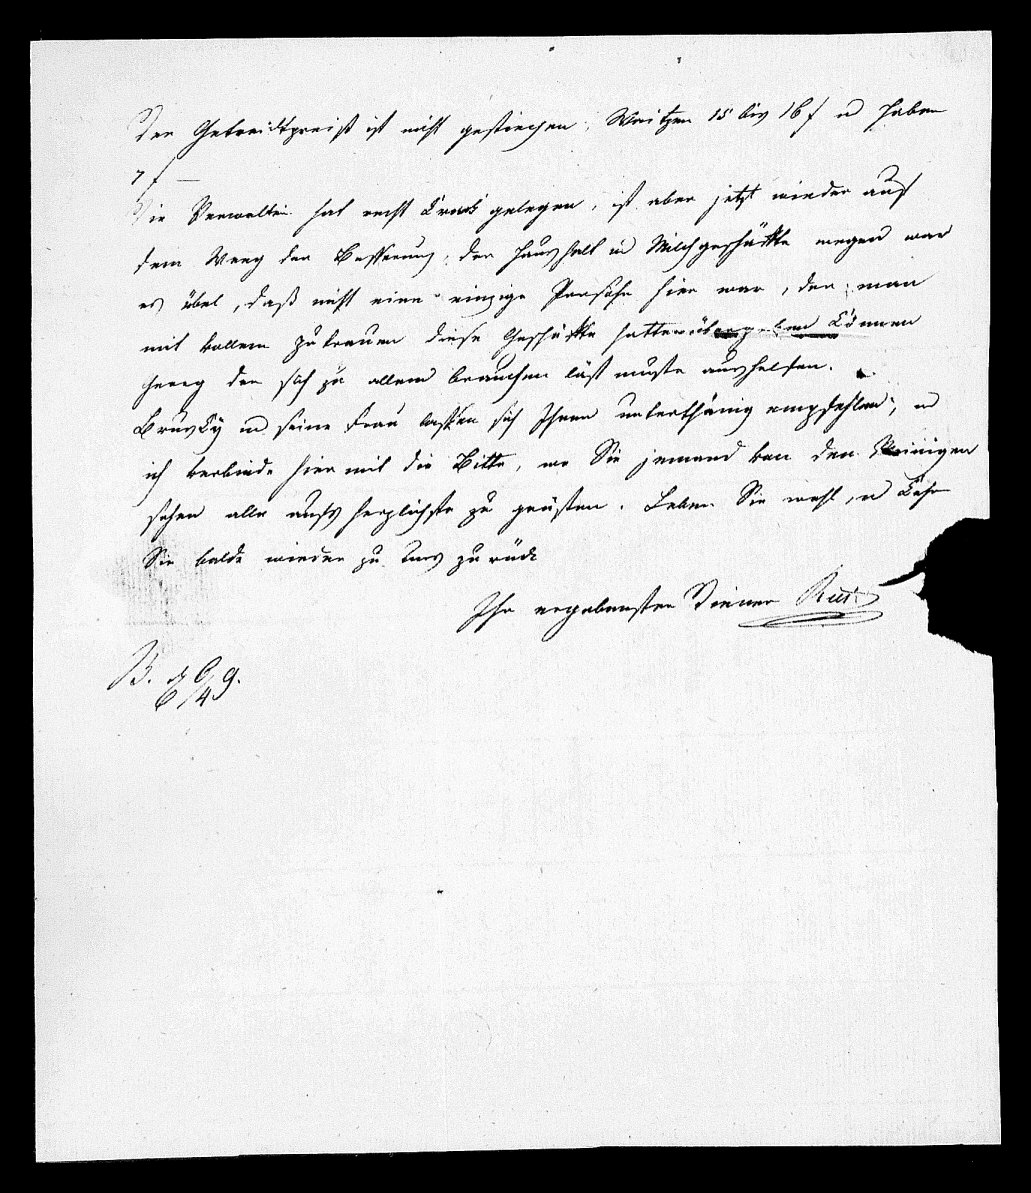 Der Getreidtpreiß ist nicht gestiechen, Weitzen 15 bis 16 f u Haber
7 f —
Die Verwalterin hat recht krank gelegen, ist aber jetzt wieder auf
dem Weeg der Besserung, der Haushalt u Milchgeschäfte wegen war
es übel, daß nicht eine einzige Persohn hier war, der man
mit vollem zutrauen diese Geschäfte hatte übergeben können
der sich zu allem brauchen läst muste aushelfen.
Brusky u seine Frau lassen sich Ihnen unterthänig empfehlen, u
ich verbinde hiermit die Bitte, wo Sie jemand von den Meinigen
sehen alle aufs herzlichste zu grüssen. Leben Sie wohl, u kehr
Sie balde wieder zu uns zurück
Ihr ergebenster Diener
B. d 6/4 9.